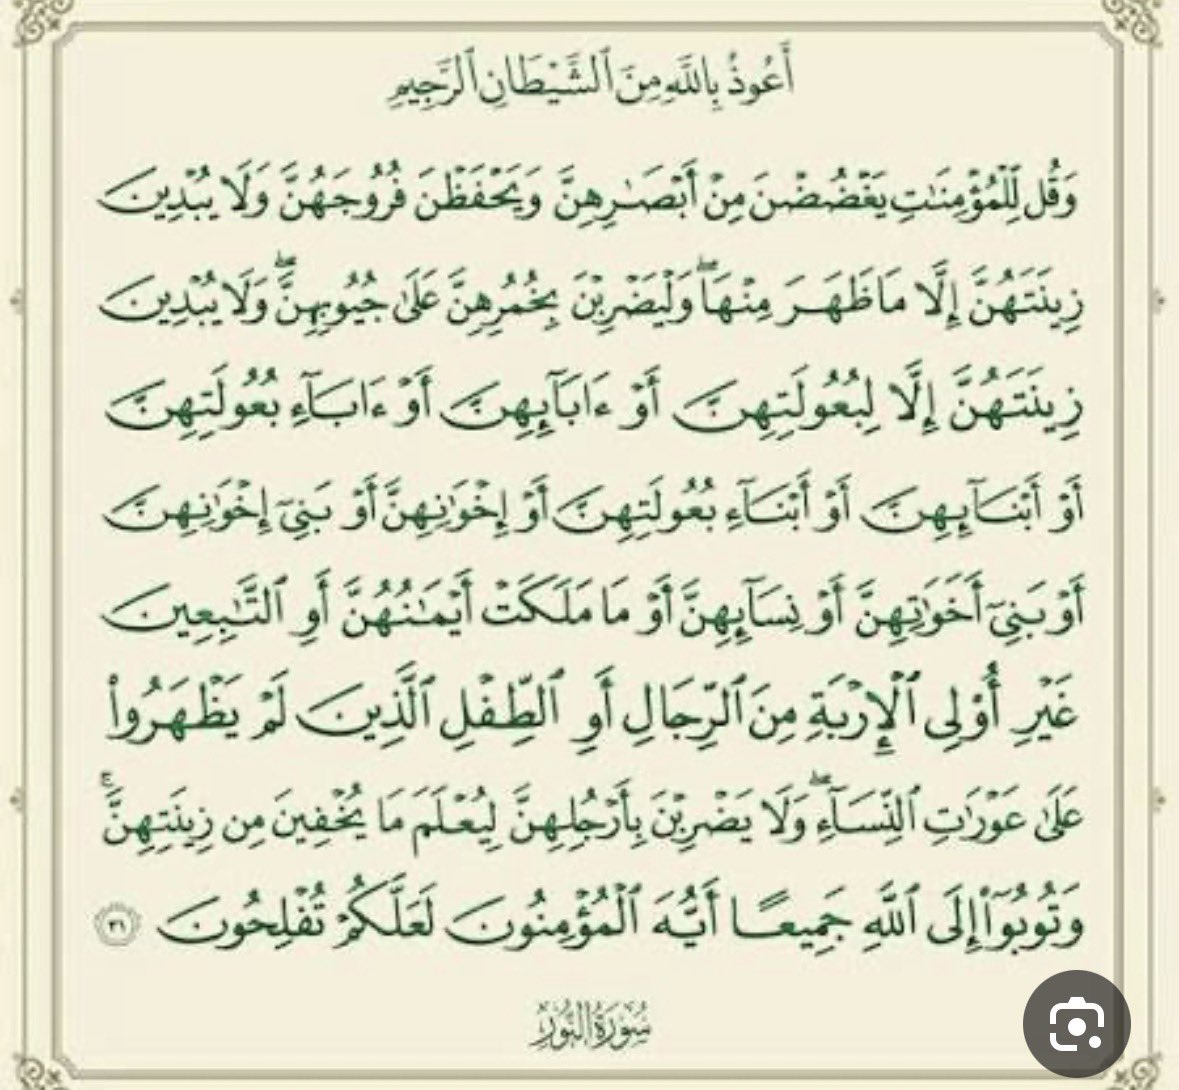 أَعُوذُ بِاللَّهِ مِنَ ٱلشَّيْطَانِ ٱلرَّجِيمِ
وَقُل لِّلْمُؤْمِنَٰتِ يَغْضُضْنَ مِنْ أَبْصَٰرِهِنَّ وَيَحْفَظْنَ فُرُوجَهُنَّ وَلَا يُبْدِينَ
زِينَتَهُنَّ إِلَّا مَا ظَهَرَ مِنْهَاۖ وَلْيَضْرِبْنَ بِخُمُرِهِنَّ عَلَىٰ جُيُوبِهِنَّۖ وَلَا يُبْدِينَ
زِينَتَهُنَّ إِلَّا لِبُعُولَتِهِنَّ أَوْ ءَابَآئِهِنَّ أَوْ ءَابَآءِ بُعُولَتِهِنَّ
أَوْ أَبْنَآئِهِنَّ أَوْ أَبْنَآءِ بُعُولَتِهِنَّ أَوْ إِخْوَٰنِهِنَّ أَوْ بَنِىٓ إِخْوَٰنِهِنَّ
أَوْ بَنِىٓ أَخَوَٰتِهِنَّ أَوْ نِسَآئِهِنَّ أَوْ مَا مَلَكَتْ أَيْمَٰنُهُنَّ أَوِ ٱلتَّٰبِعِينَ
غَيْرِ أُو۟لِى ٱلْإِرْبَةِ مِنَ ٱلرِّجَالِ أَوِ ٱلطِّفْلِ ٱلَّذِينَ لَمْ يَظْهَرُوا۟
عَلَىٰ عَوْرَٰتِ ٱلنِّسَآءِۖ وَلَا يَضْرِبْنَ بِأَرْجُلِهِنَّ لِيُعْلَمَ مَا يُخْفِينَ مِن زِينَتِهِنَّۚ
وَتُوبُوٓا۟ إِلَى ٱللَّهِ جَمِيعًا أَيُّهَ ٱلْمُؤْمِنُونَ لَعَلَّكُمْ تُفْلِحُونَ ٣١
سُورَةُ النُّورِ